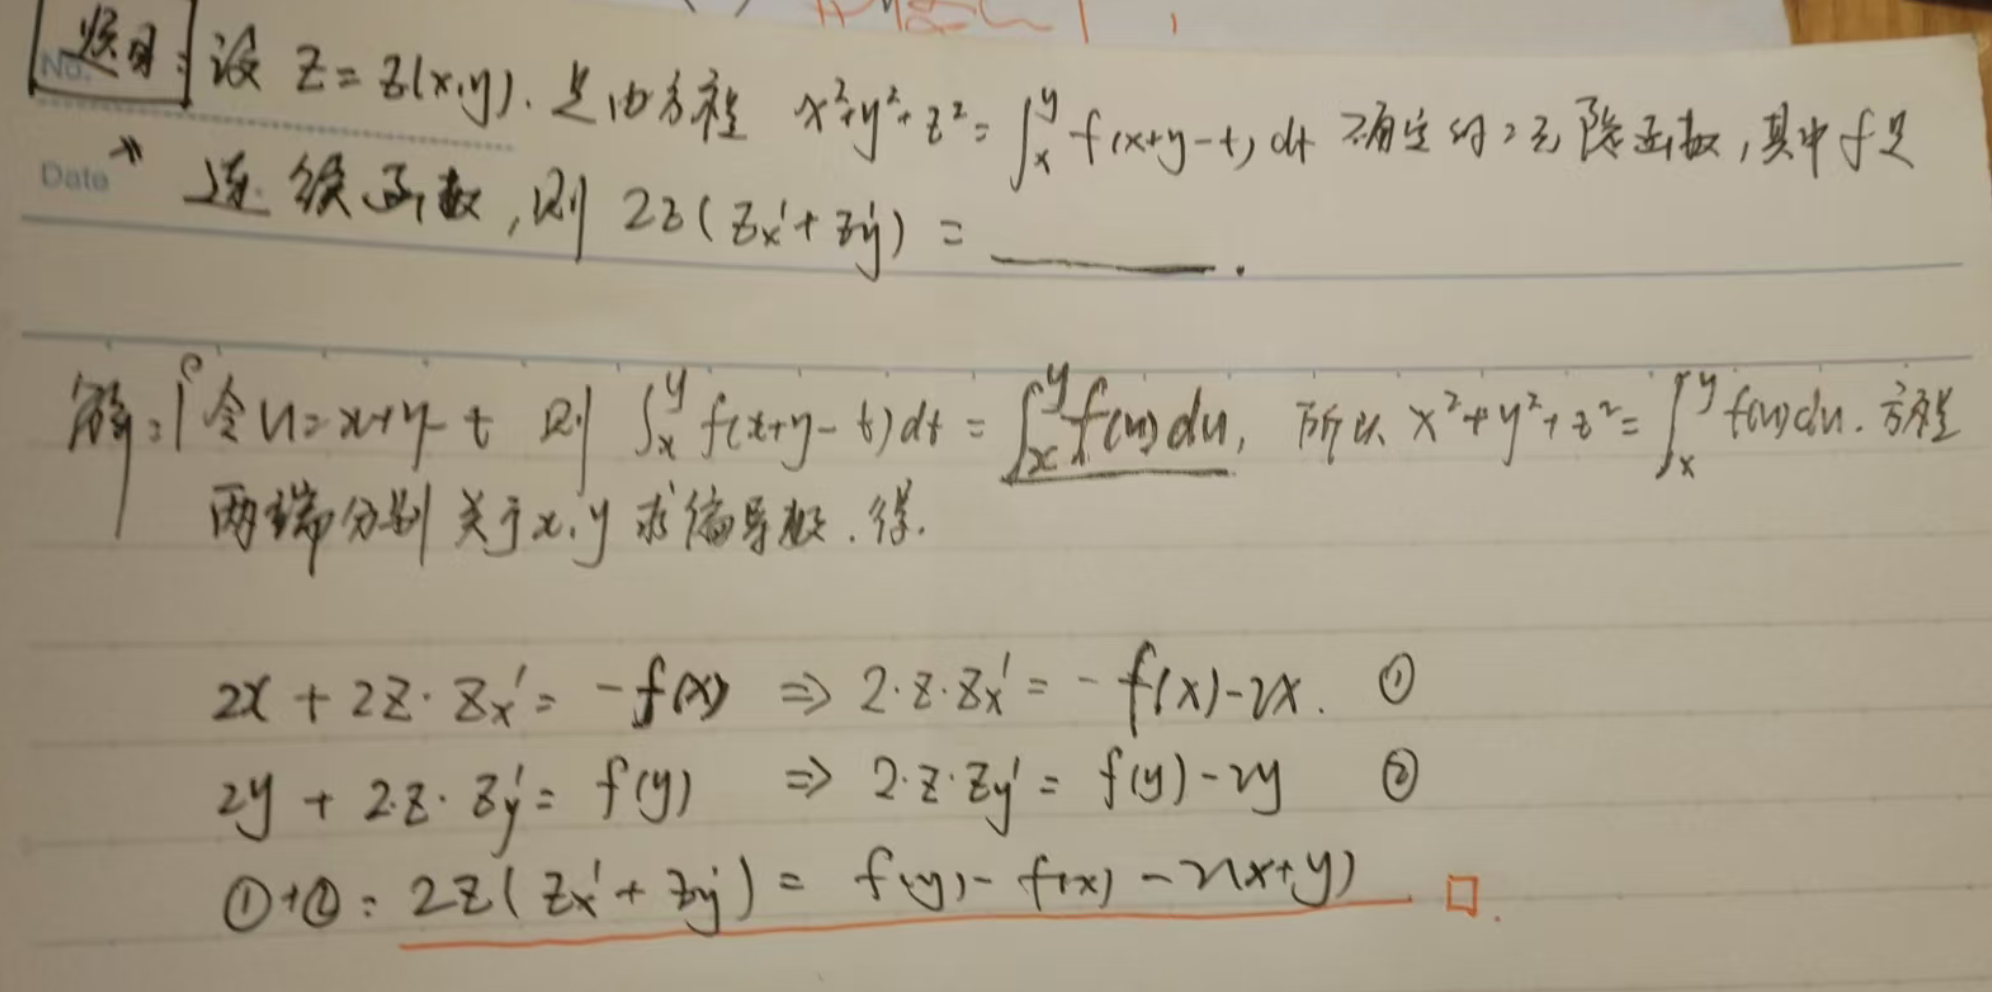 题目: 设 z=z(x,y). 是由方程 x²+y²+z²=∫ₓʸ f(x+y-t) dt 确定的2元隐函数,其中f是
No.
Date
连续函数,则 2z(zx'+zy')= ______.
解: 1° 令u=x+y-t 则 ∫ₓʸ f(x+y-t)dt = ∫ₓʸ f(u)du, 所以 x²+y²+z²=∫ₓʸ f(u)du. 方程
两端分别关于x,y求偏导数.得.
2x+2z·zx'= -f(x) ⇒ 2·z·zx'= -f(x)-2x. ①
2y+2·z·zy'= f(y) ⇒ 2·z·zy'= f(y)-2y ②
①+②: 2z(zx'+zy')= f(y)-f(x)-2(x+y) □.